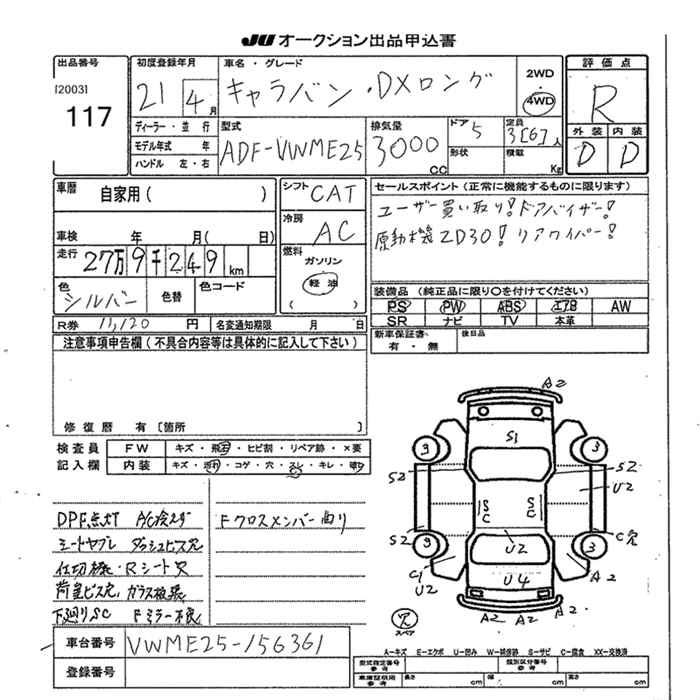 JU オークション出品申込書
出品番号
[2003]
117
初度登録年月
21 4月
車名・グレード
キャラバン・DXロング
2WD
4WD
評価点
R
外装 内装
D D
ディーラー・並行
モデル年式 年
ハンドル 左・右
型式
ADF-VWME25
排気量
3000 CC
ドア 5
形状
定員
3[6]人
積載
Kg
車歴 自家用( )
シフト CAT
セールスポイント(正常に機能するものに限ります)
ユーザー買い取り!ドアバイザー!
原動機ZD30!リアワイパー!
冷房 AC
車検 年 月( 日)
走行 27万9千249km
燃料
ガソリン
軽油
( )
色 シルバー 色替 色コード
装備品(純正品に限り○を付けてください)
PS PW ABS エアB AW
SR ナビ TV 本革
R券 11,120円 名変通知期限 月 日
新車保証書
有・無
後日品
注意事項申告欄(不具合内容等は具体的に記入して下さい)
修復歴 有〔箇所 〕
検査員 FW キズ・飛石・ヒビ割・リペア跡・×要
記入欄 内装 キズ・汚れ・コゲ・穴・スレ・キレ・破れ
DPF点灯 AC冷えず
シートヤブレ ダッシュビス穴
仕切機・Rシート欠
荷室ビス穴 ガラス複製
下廻りSC Fミラー不良
Fクロスメンバー曲り
A2
S1
3 3
S2 S2
U2
S
C
S
C
S2 C穴
3 U2 3
C1
U2
U4
A2
A2 A2 A2
欠
スペア
車台番号 VWME25-156361
登録番号
A-キズ E-エクボ U-凹み W-補修跡 S-サビ C-腐食 XX-交換済
型式指定番号
参考
類別区分番号
参考
車庫証明用
参考
長さ cm 幅 cm 高さ cm